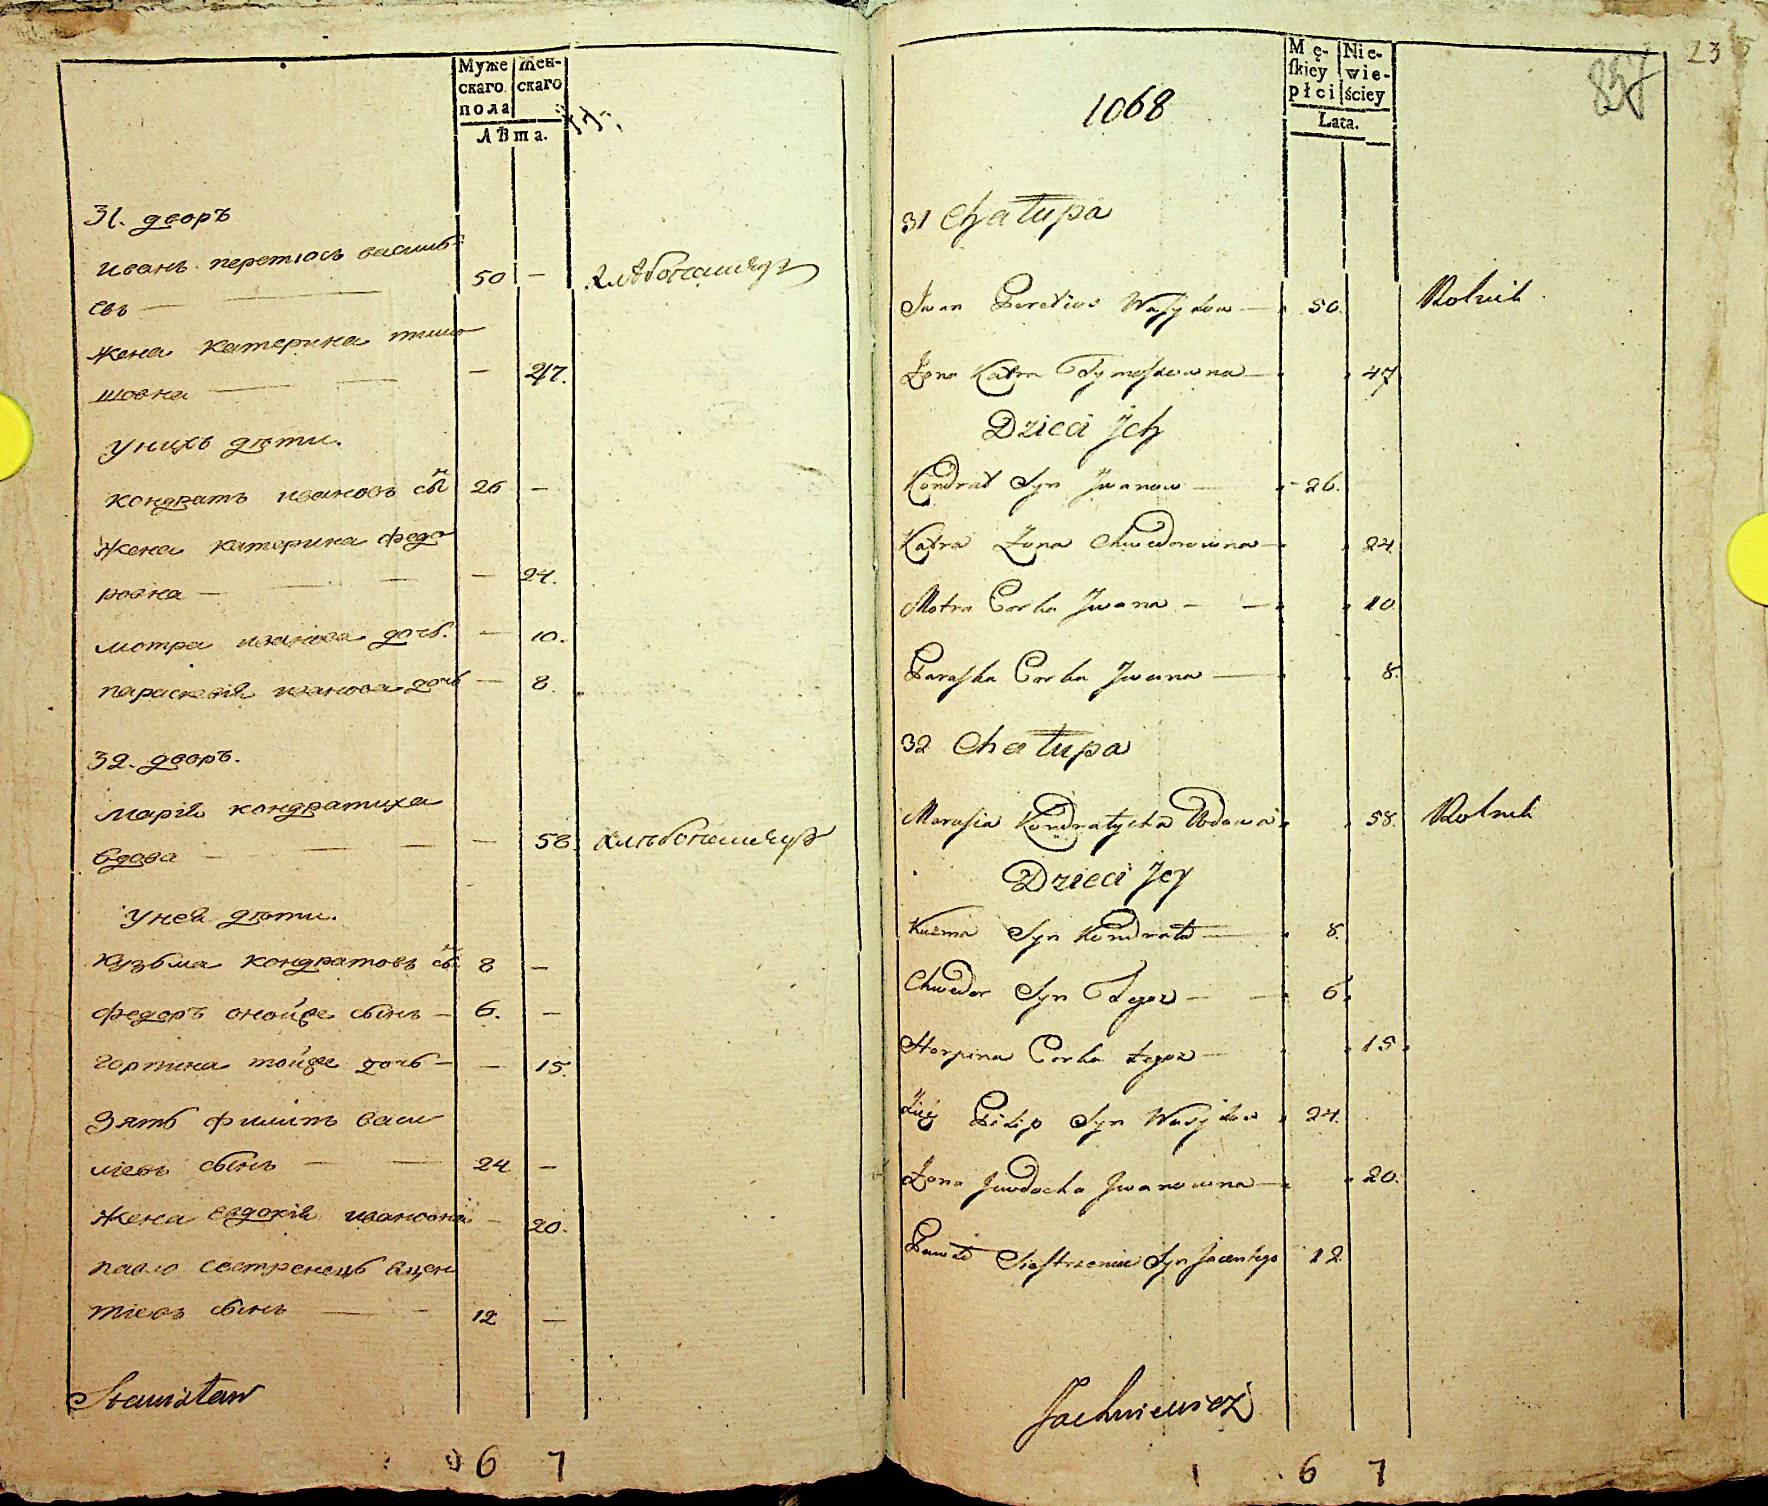 Муже
скаго
пола
Жен-
скаго
Лѣта.
31. дворъ
иванъ перетюсъ василь-
евъ — 50 — хлѣбопашецъ
жена катерина тимо
шовна — 47.
унихъ дѣти.
кондратъ ивановъ сын 26 —
жена катерина федо
ровна — — 24.
мотра иванова дочь. — 10.
параскевія иванова дочь — 8.
32. дворъ.
марія кондратиха
вдова — — 58. хлѣбопашецъ
уней дѣти.
кузьма кондратовъ сын 8 —
федоръ онойже сынъ — 6. —
горпина тойже дочь — — 15.
зять филипъ васи
лиевъ сынъ — 24 —
жена евдокія ивановна — 20.
павло сестренецъ вцен
тиевъ сынъ — 12 —
Stanisław
6 7
23
857
1068
Mę-
skiey
płci
Nie-
wie-
ściey
Lata.
31 Chałupa
Iwan Peretius Wasylow — 50. Rolnik
Żona Katra Tymoszowna — 47
Dzieci Jch
Kondrat Syn Iwanow — 26.
Katra Żona Chwedorowna — 24.
Motra Corka Jwana — 10
Paraska Corka Jwana — 8.
32 Chałupa
Marusia Kondratycha Wdowa 58. Rolnik
Dzieci Jey
Kuzma Syn Kondrata — 8.
Chwedor Syn Tegoż — 6.
Horpina Corka tegoż — 15.
Zięć Filip Syn Wasylow 24.
Żona Jewdocha Jwanowna — 20.
Paweł Siestrzeniec Syn Jacentego 12
Jachniewicz
6 7